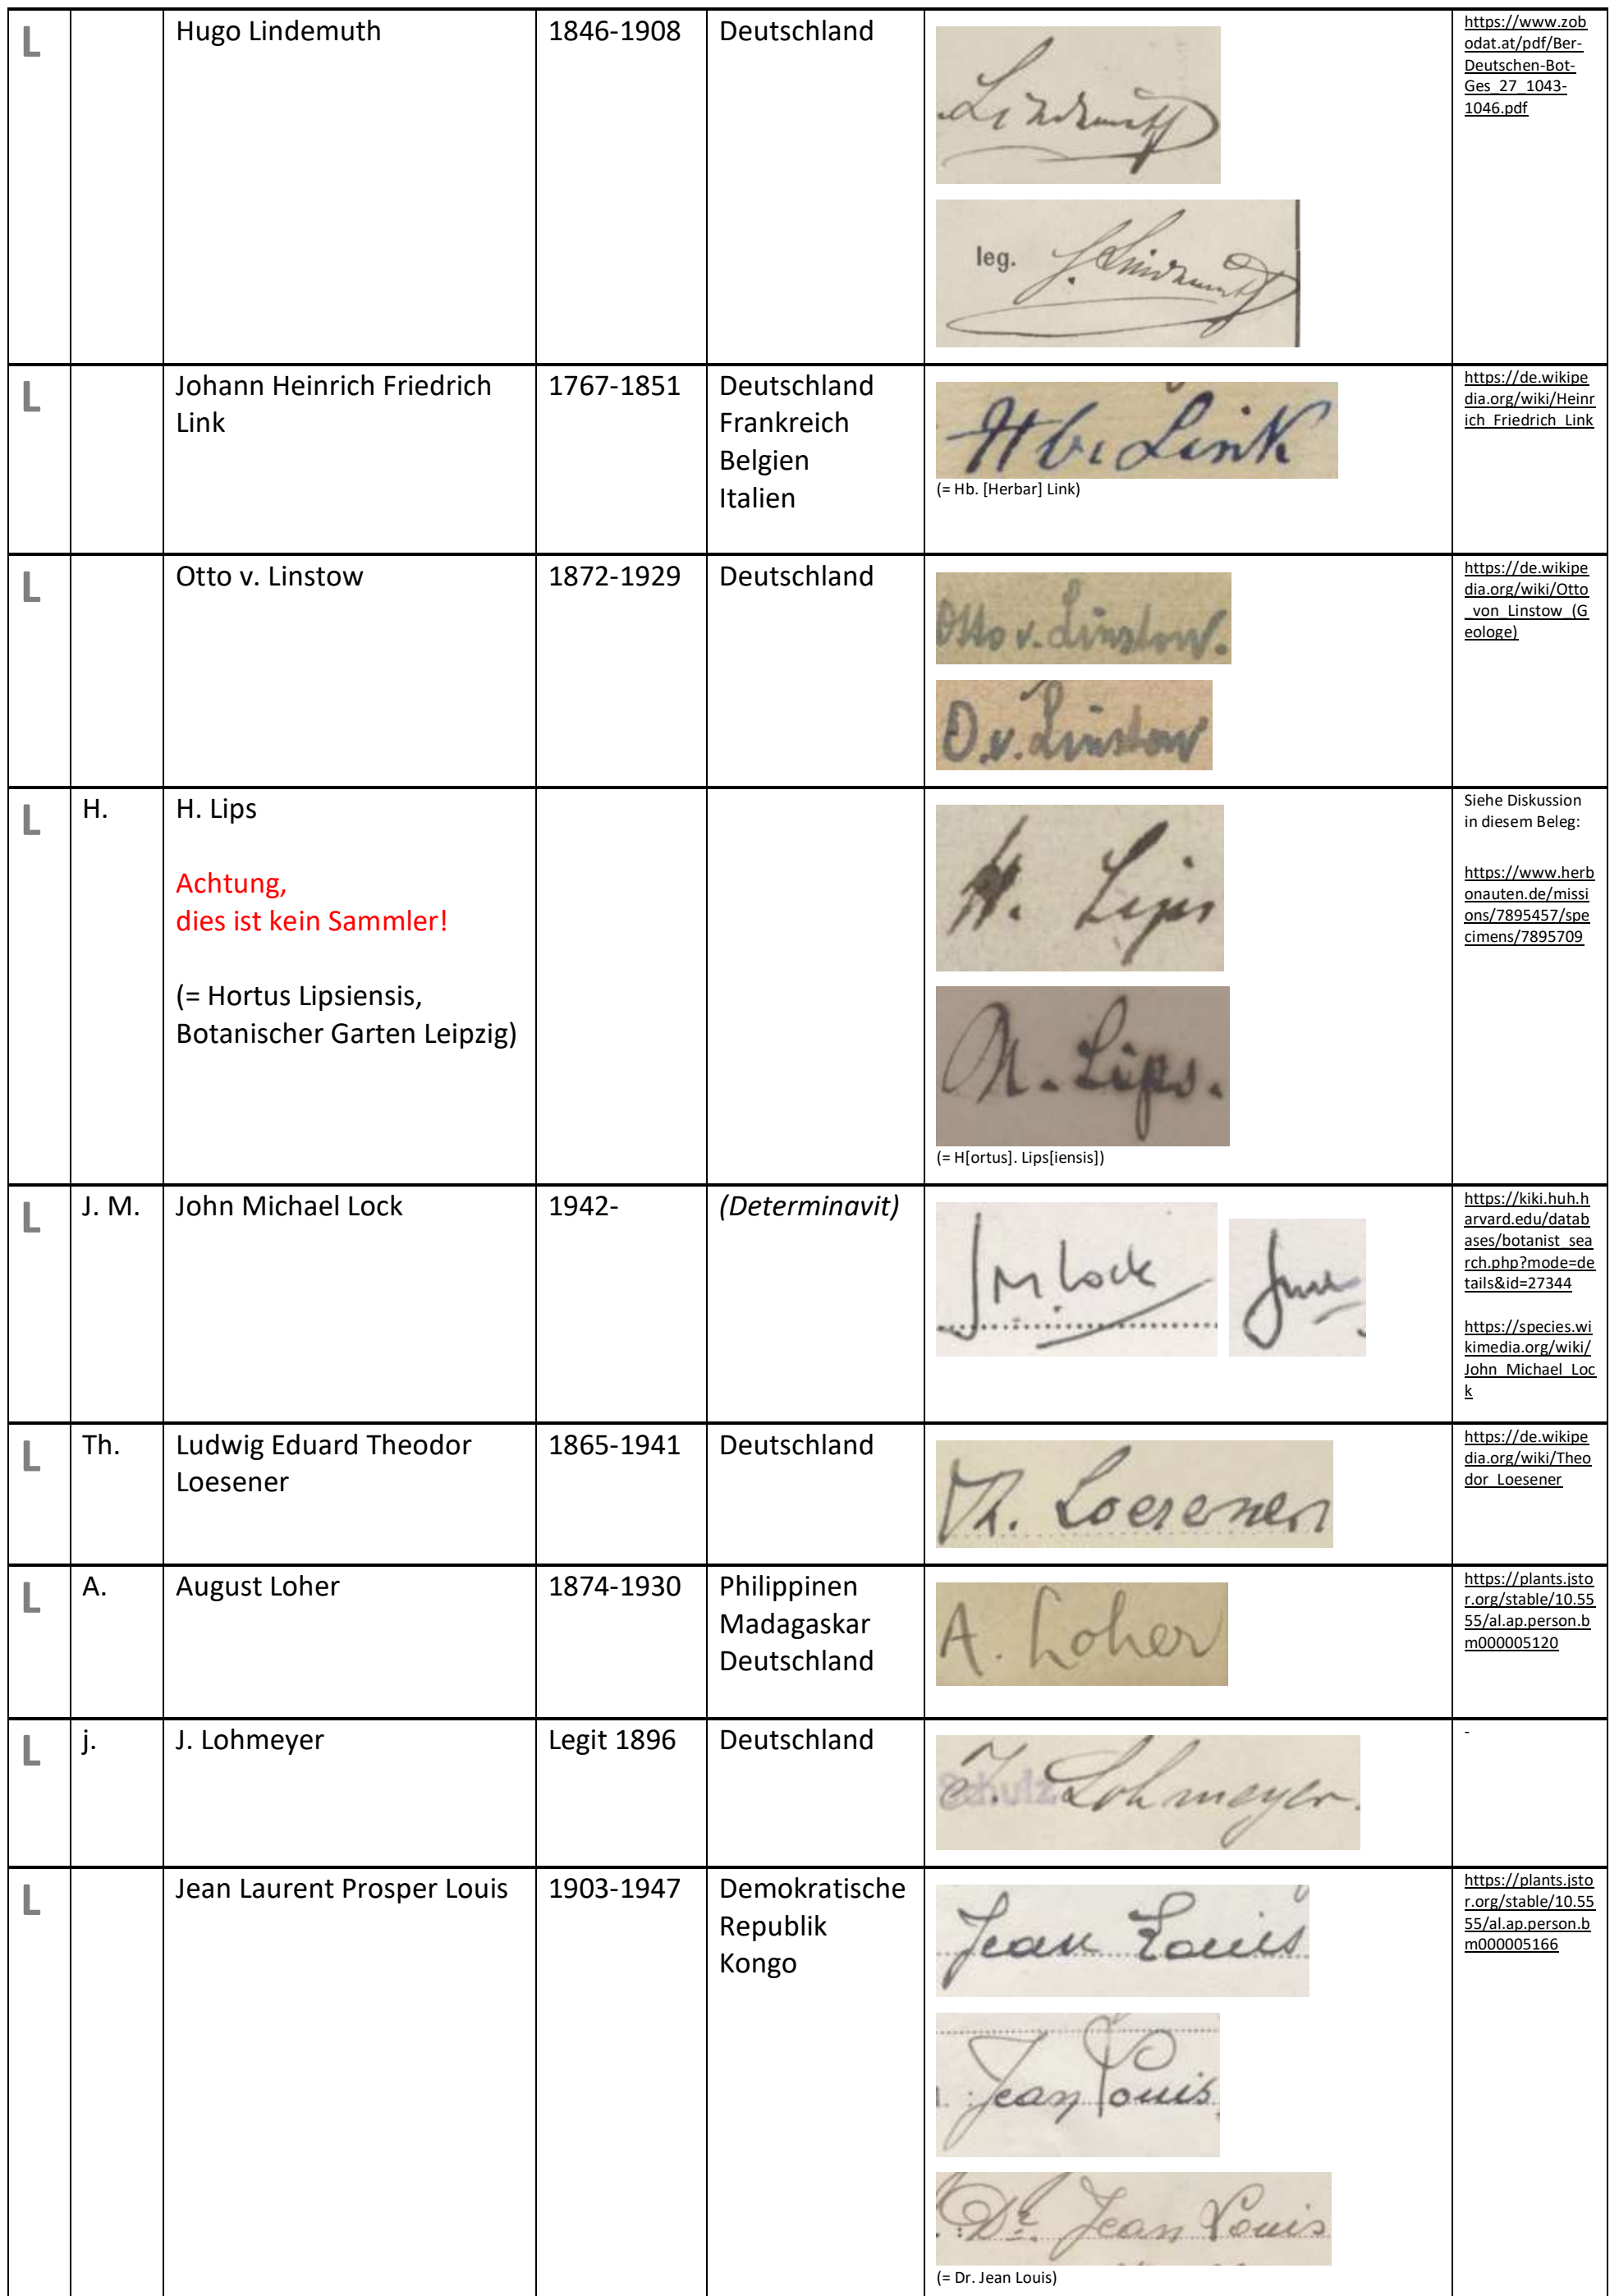 L
Hugo Lindemuth
1846-1908
Deutschland
Lindemuth
leg. H. Lindemuth
https://www.zob
odat.at/pdf/Ber-
Deutschen-Bot-
Ges_27_1043-
1046.pdf
L
Johann Heinrich Friedrich
Link
1767-1851
Deutschland
Frankreich
Belgien
Italien
Hb. Link
(= Hb. [Herbar] Link)
https://de.wikipe
dia.org/wiki/Heinr
ich_Friedrich_Link
L
Otto v. Linstow
1872-1929
Deutschland
Otto v. Linstow.
O. v. Linstow
https://de.wikipe
dia.org/wiki/Otto
_von_Linstow_(G
eologe)
L
H.
H. Lips
Achtung,
dies ist kein Sammler!
(= Hortus Lipsiensis,
Botanischer Garten Leipzig)
H. Lips
H. Lips.
(= H[ortus]. Lips[iensis])
Siehe Diskussion
in diesem Beleg:
https://www.herb
onauten.de/missi
ons/7895457/spe
cimens/7895709
L
J. M.
John Michael Lock
1942-
(Determinavit)
JM. Lock
https://kiki.huh.h
arvard.edu/datab
ases/botanist_sea
rch.php?mode=de
tails&id=27344
https://species.wi
kimedia.org/wiki/
John_Michael_Loc
k
L
Th.
Ludwig Eduard Theodor
Loesener
1865-1941
Deutschland
Th. Loesener
https://de.wikipe
dia.org/wiki/Theo
dor_Loesener
L
A.
August Loher
1874-1930
Philippinen
Madagaskar
Deutschland
A. Loher
https://plants.jsto
r.org/stable/10.55
55/al.ap.person.b
m000005120
L
j.
J. Lohmeyer
Legit 1896
Deutschland
Schulz
J. Lohmeyer.
-
L
Jean Laurent Prosper Louis
1903-1947
Demokratische
Republik
Kongo
Jean Louis
Jean Louis
Dr. Jean Louis
(= Dr. Jean Louis)
https://plants.jsto
r.org/stable/10.55
55/al.ap.person.b
m000005166